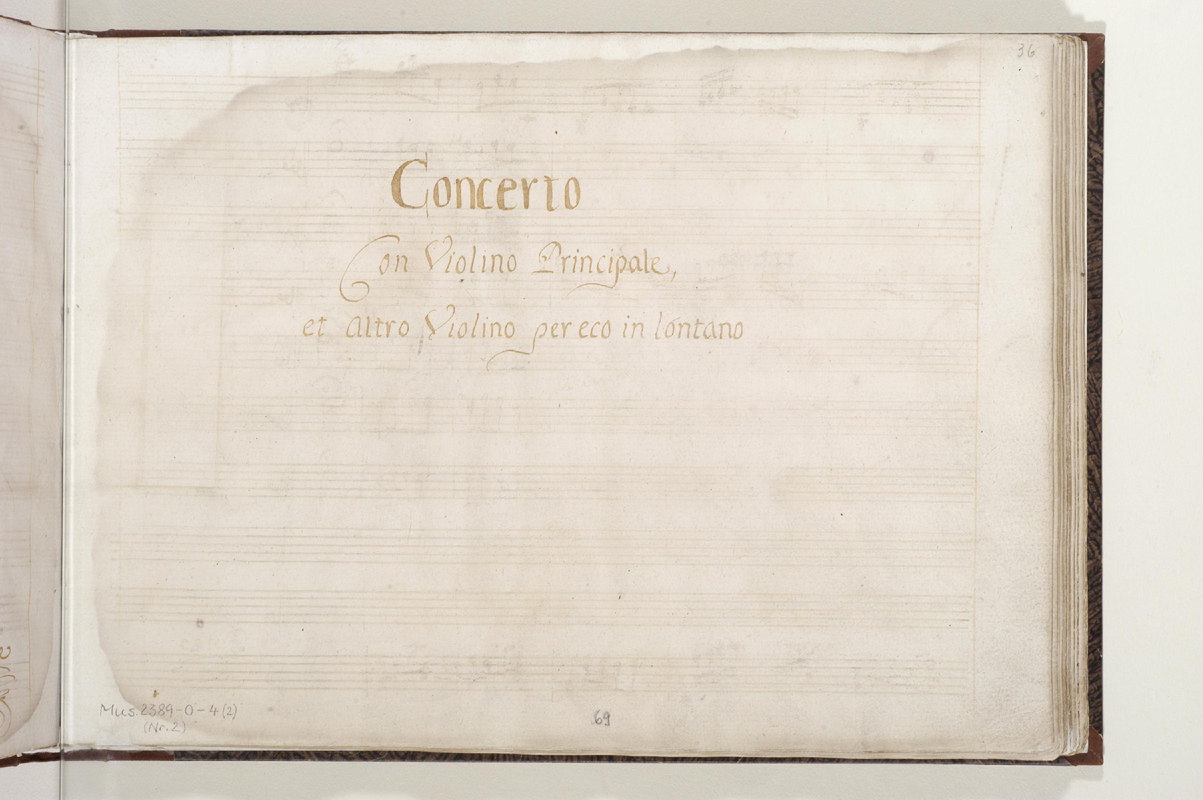 36
Concerto
Con Violino Principale,
et altro Violino per eco in lontano
Mus. 2389-O-4 (2)
(Nr. 2)
69